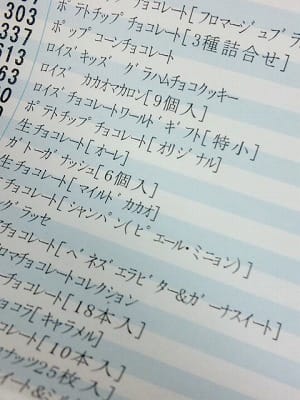 チョコレート[フロマージュブラ
303 ポテトチップチョコレート[3種詰合せ]
337 ポップコーンチョコレート
613 ロイズキッズ グラハムチョコクッキー
63 ロイズ カカオマカロン[9個入]
60 ロイズチョコレートワールドギフト[特小]
ポテトチップチョコレート[オリジナル]
生チョコレート[オーレ]
ガトーガナッシュ[6個入]
生チョコレート[マイルドカカオ]
チョコレート[シャンパン(ピエール・ミニョン)]
グラッセ
チョコレート[ベネズエラビター&ガーナスイート]
ロマチョコレートコレクション
チョコレート[18本入]
ョコラ[キャラメル]
コレート[10本入]
ナッツ25枚入]
イート&ミル